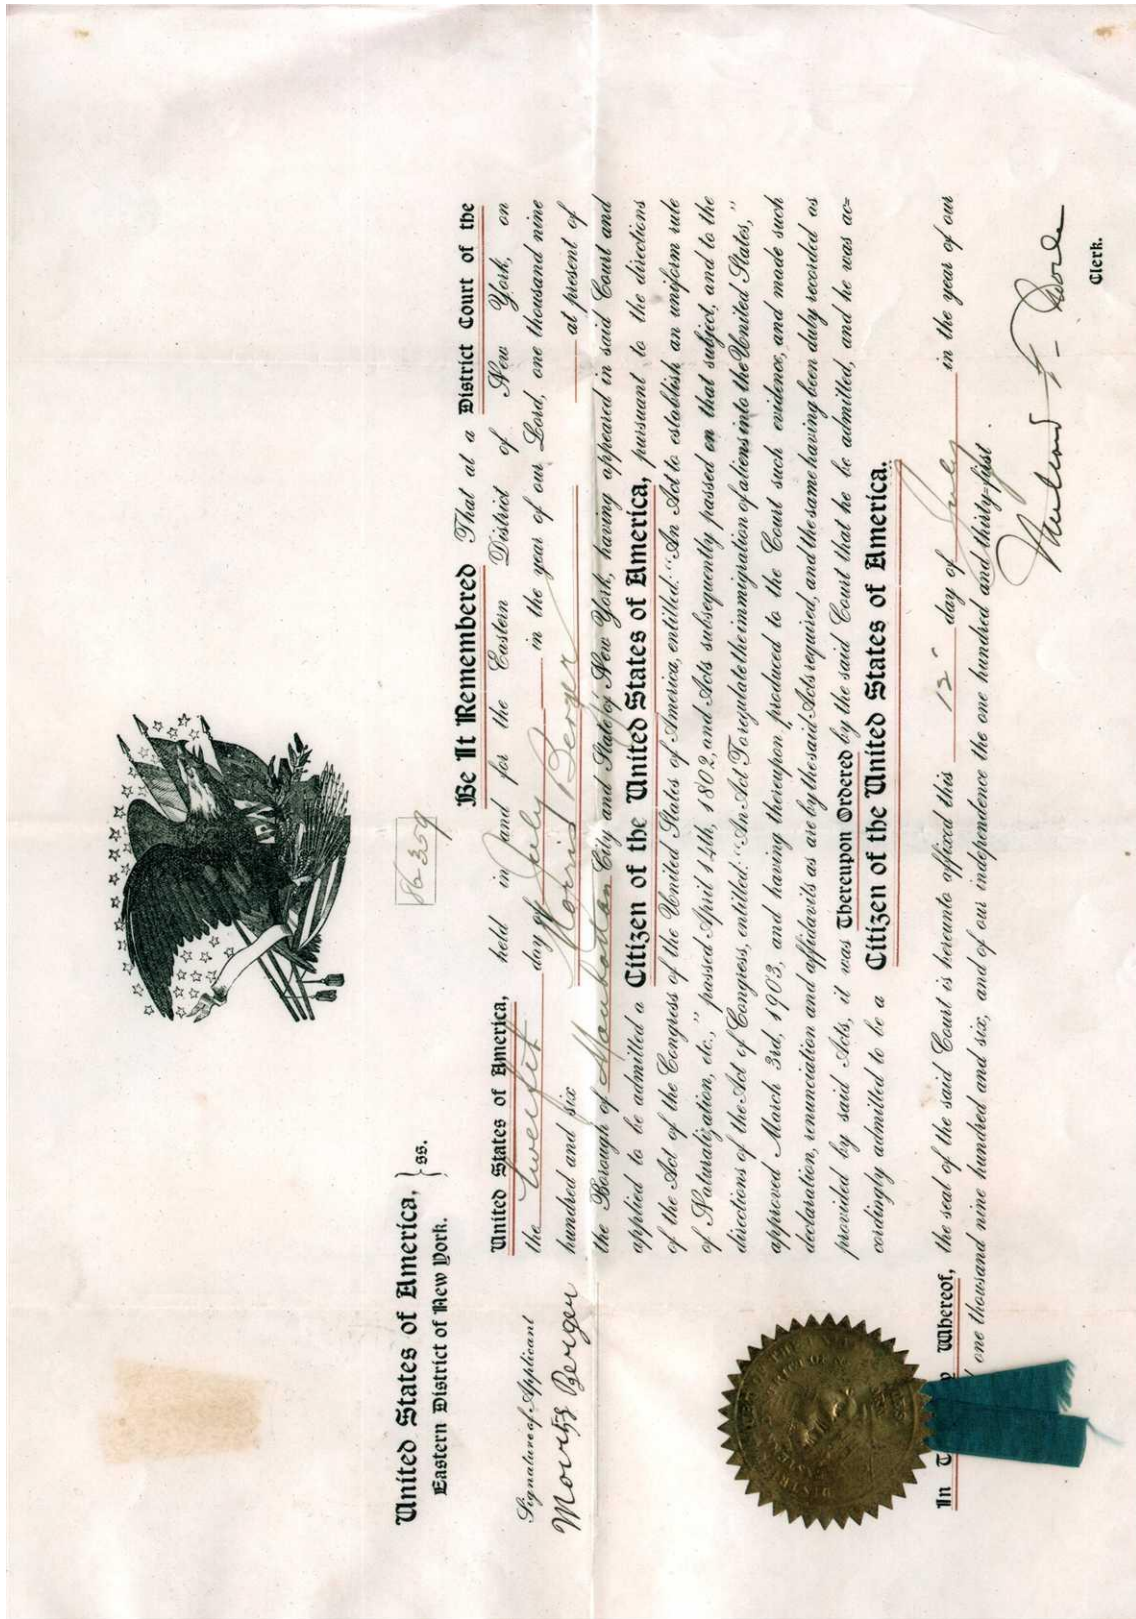 United States of America,
Eastern District of New York. } ss.
86359
Signature of Applicant
Morris Berger
Be It Remembered That at a District Court of the
United States of America, held in and for the Eastern District of New York, on
the twelfth day of July in the year of our Lord, one thousand nine
hundred and six Morris Berger at present of
the Borough of Manhattan City and State of New York, having appeared in said Court and
applied to be admitted a Citizen of the United States of America, pursuant to the directions
of the Act of the Congress of the United States of America, entitled: "An Act to establish an uniform rule
of Naturalization, etc.," passed April 14th, 1802, and Acts subsequently passed on that subject, and to the
directions of the Act of Congress, entitled: "An Act To regulate the immigration of aliens into the United States,"
approved March 3rd, 1903, and having thereupon produced to the Court such evidence, and made such
declaration, renunciation and affidavits as are by the said Acts required, and the same having been duly recorded as
provided by said Acts, it was Thereupon Ordered by the said Court that he be admitted, and he was ac=
cordingly admitted to be a Citizen of the United States of America.
In Whereof, the seal of the said Court is hereunto affixed this 12" day of July in the year of our
one thousand nine hundred and six, and of our independence the one hundred and thirty-first.
Clerk.